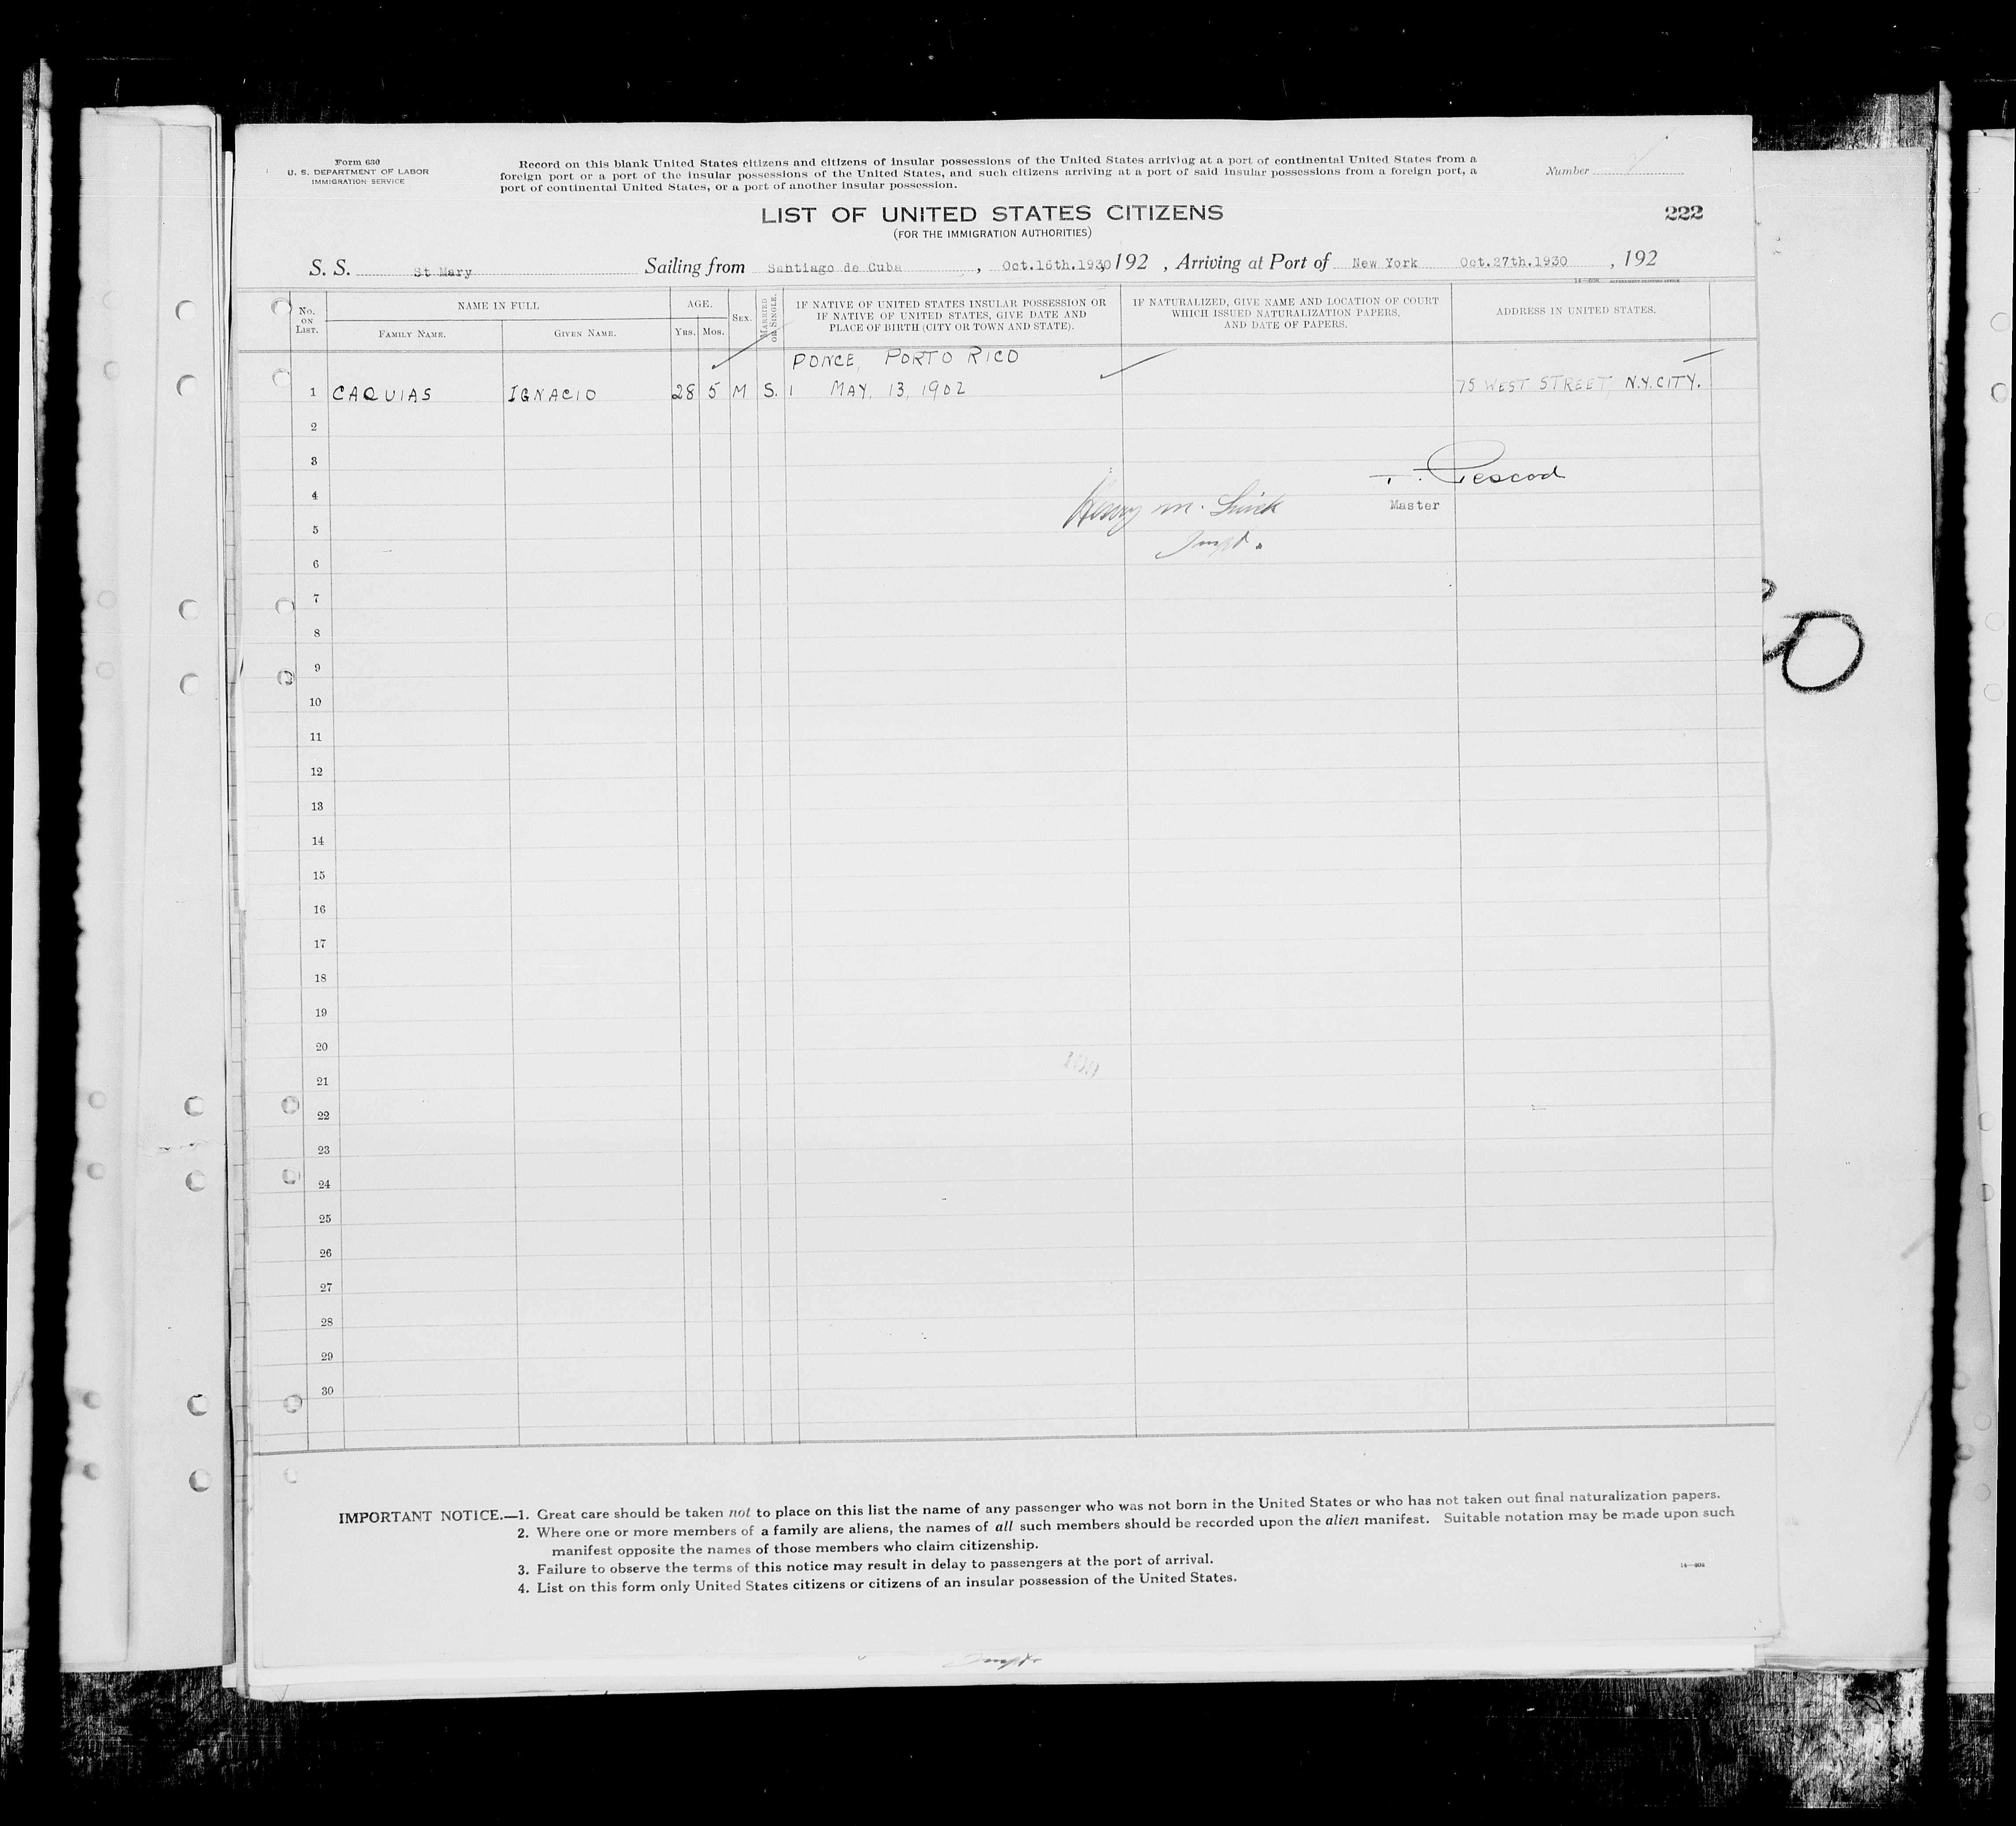 Form 630
U. S. DEPARTMENT OF LABOR
IMMIGRATION SERVICE
Record on this blank United States citizens and citizens of insular possessions of the United States arriving at a port of continental United States from a
foreign port or a port of the insular possessions of the United States, and such citizens arriving at a port of said insular possessions from a foreign port, a
port of continental United States, or a port of another insular possession.
Number
LIST OF UNITED STATES CITIZENS
(FOR THE IMMIGRATION AUTHORITIES)
222
S. S. St Mary Sailing from Santiago de Cuba, Oct.16th.1930, 192 , Arriving at Port of New York Oct.27th.1930, 192
No. ON LIST.
NAME IN FULL
FAMILY NAME.
GIVEN NAME.
AGE.
YRS. MOS.
SEX.
MARRIED OR SINGLE.
IF NATIVE OF UNITED STATES INSULAR POSSESSION OR
IF NATIVE OF UNITED STATES, GIVE DATE AND
PLACE OF BIRTH (CITY OR TOWN AND STATE).
IF NATURALIZED, GIVE NAME AND LOCATION OF COURT
WHICH ISSUED NATURALIZATION PAPERS,
AND DATE OF PAPERS.
ADDRESS IN UNITED STATES.
PONCE, PORTO RICO
1 CAQUIAS IGNACIO 28 5 M S. 1 MAY, 13, 1902 75 WEST STREET, N.Y. CITY.
2
3
Pescod
4
Henry M.
Master
5
6
7
8
9
10
11
12
13
14
15
16
17
18
19
20
21
22
23
24
25
26
27
28
29
30
IMPORTANT NOTICE.—1. Great care should be taken not to place on this list the name of any passenger who was not born in the United States or who has not taken out final naturalization papers.
2. Where one or more members of a family are aliens, the names of all such members should be recorded upon the alien manifest. Suitable notation may be made upon such
manifest opposite the names of those members who claim citizenship.
3. Failure to observe the terms of this notice may result in delay to passengers at the port of arrival.
4. List on this form only United States citizens or citizens of an insular possession of the United States.